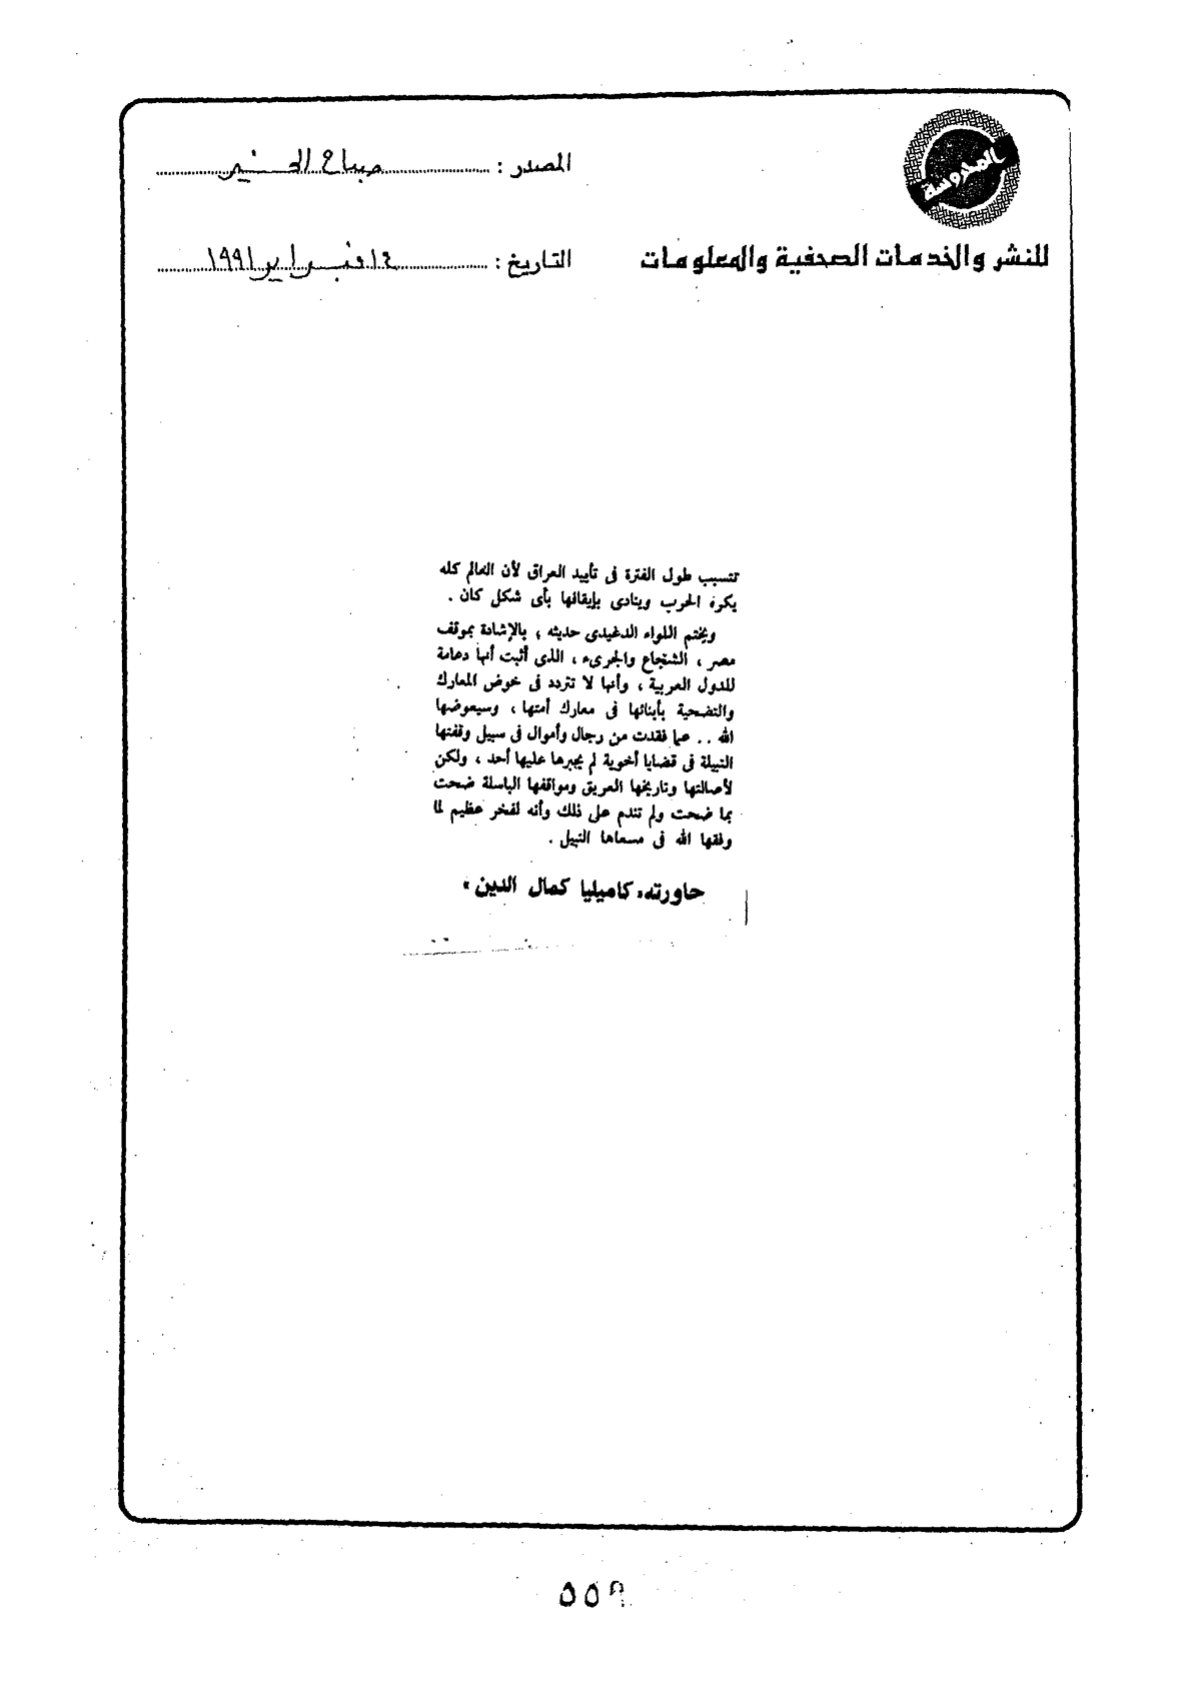 المحروسة
للنشر والخدمات الصحفية والمعلومات
المصدر : صباح الخير
التاريخ : ١٤ فبراير ١٩٩١
تتسبب طول الفترة فى تأييد العراق لأن العالم كله
يكره الحرب وينادى بإيقافها بأى شكل كان .
ويختم اللواء الدغيدى حديثه ، بالإشادة بموقف
مصر ، الشجاع والجرىء ، الذى أثبت أنها دعامة
للدول العربية ، وأنها لا تتردد فى خوض المعارك
والتضحية بأبنائها فى معارك أمتها ، وسيعوضها
الله .. عما فقدت من رجال وأموال فى سبيل وقفتها
النبيلة فى قضايا أخوية لم يجبرها عليها أحد ، ولكن
لأصالتها وتاريخها العريق ومواقفها الباسلة ضحت
بما ضحت ولم تندم على ذلك وأنه لفخر عظيم لما
وفقها الله فى مسعاها النبيل .
حاورته « كاميليا كمال الدين »
٥٥٩